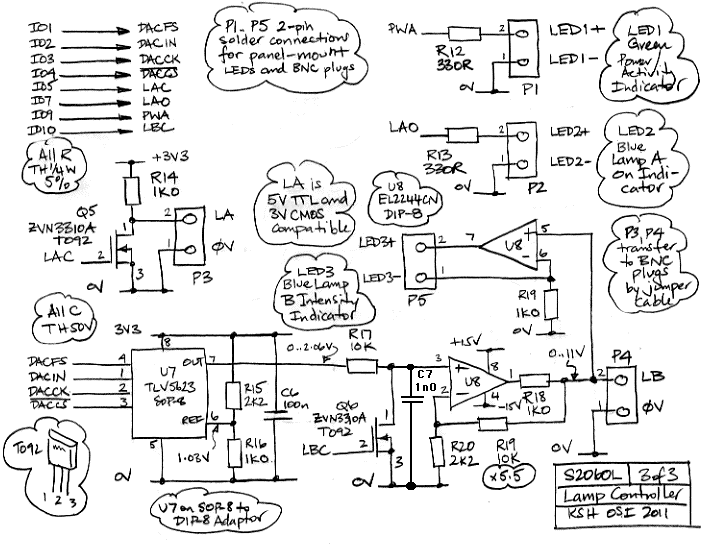 IO1 DACFS
IO2 DACIN
IO3 DACCK
IO4 DACCS
IO5 LAC
IO7 LAO
IO9 PWA
IO10 LBC
P1..P5 2-pin
solder connections
for panel-mount
LEDs and BNC plugs
PWA
R12
330R
2
1
0V
P1
LED1+
LED1-
LED1
Green
Power/
Activity
Indicator
LAO
R13
330R
2
1
0V
P2
LED2+
LED2-
LED2
Blue
Lamp A
On Indi-
cator
All R
TH 1/4W
5%
+3V3
R14
1K0
Q5
ZVN3310A
TO92
LAC
1
2
3
0V
2
1
P3
LA
0V
LA is
5V TTL and
3V CMOS
compatible
U8
EL2244CN
DIP-8
LED3+
LED3-
2
1
P5
7
U8
+
-
5
6
R19
1K0
0V
P3, P4
transfer
to BNC
plugs
by jumper
cable
LED3
Blue Lamp
B Intensity
Indicator
All C
TH 50V
3V3
DACFS 4
DACIN 1
DACCK 2
DACCS 3
8
U7
TLV5623
SOP-8
OUT
7
REF
6
5
1.03V
0V
R15
2K2
R16
1K0
C6
100n
0..2.06V
R17
10K
Q6
ZVN3310A
TO92
LBC
1
2
3
C7
1n0
+15V
3
+
2
-
U8
8
1
4
-15V
R18
1K0
R20
2K2
R19
10K
x5.5
0..11V
P4
2
1
LB
0V
0V
TO92
1 2 3
U7 on SOP-8 to
DIP-8 Adaptor
S2060L 3 of 3
Lamp Controller
KSH OSI 2011